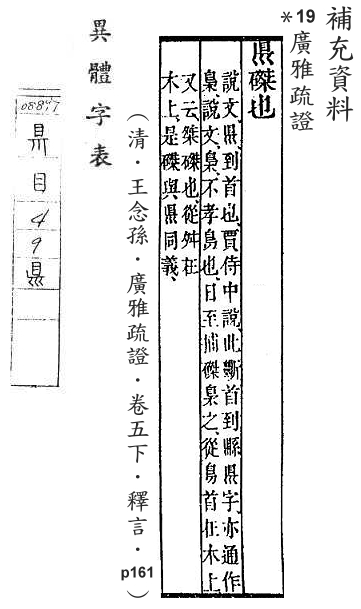 補充資料
*19 廣雅疏證
県磔也
說文、県、到首也、賈侍中說、此斷首到縣県字、亦通作
梟、說文、梟、不孝鳥也、日至捕磔梟之、從鳥首在木上、
又云、桀、磔也、從舛在
木上、是磔與県同義、
(清．王念孫．廣雅疏證．卷五下．釋言．p161)
異體字表
県 目 4 9 県